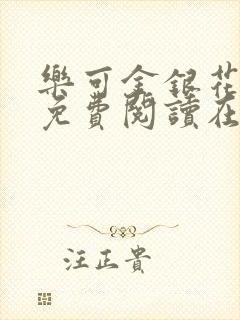 樂可金銀花
免費閱讀在
汪正貴